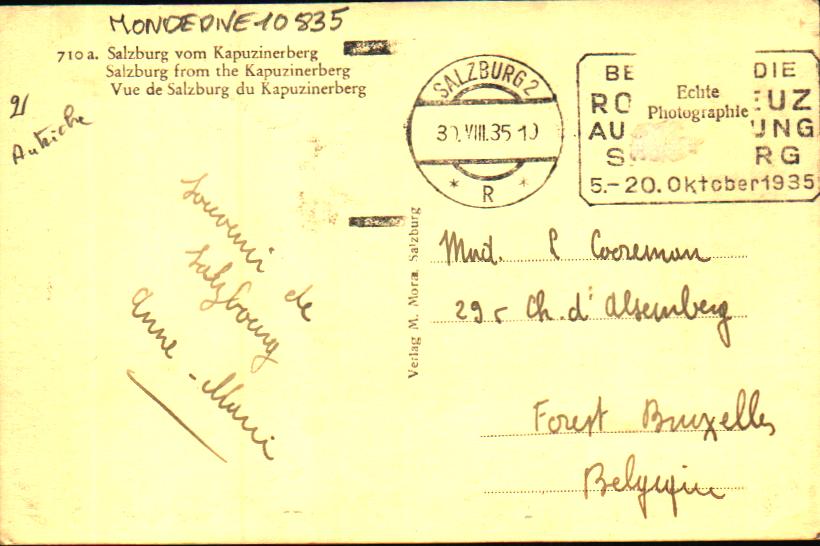 MONDEDIVE10835
710a. Salzburg vom Kapuzinerberg
Salzburg from the Kapuzinerberg
Vue de Salzburg du Kapuzinerberg
Autriche
SALZBURG 2
30.VIII.35
* R *
BE DIE
RO EUZ
AU UNG
S RG
5.-20. Oktober 1935
Echte
Photographie
Verlag M. Mora, Salzburg
Souvenir de
Salzbourg
Anne-Marie
Cooreman
Ch. d'Alsemberg
Forest Bruxelles
Belgique